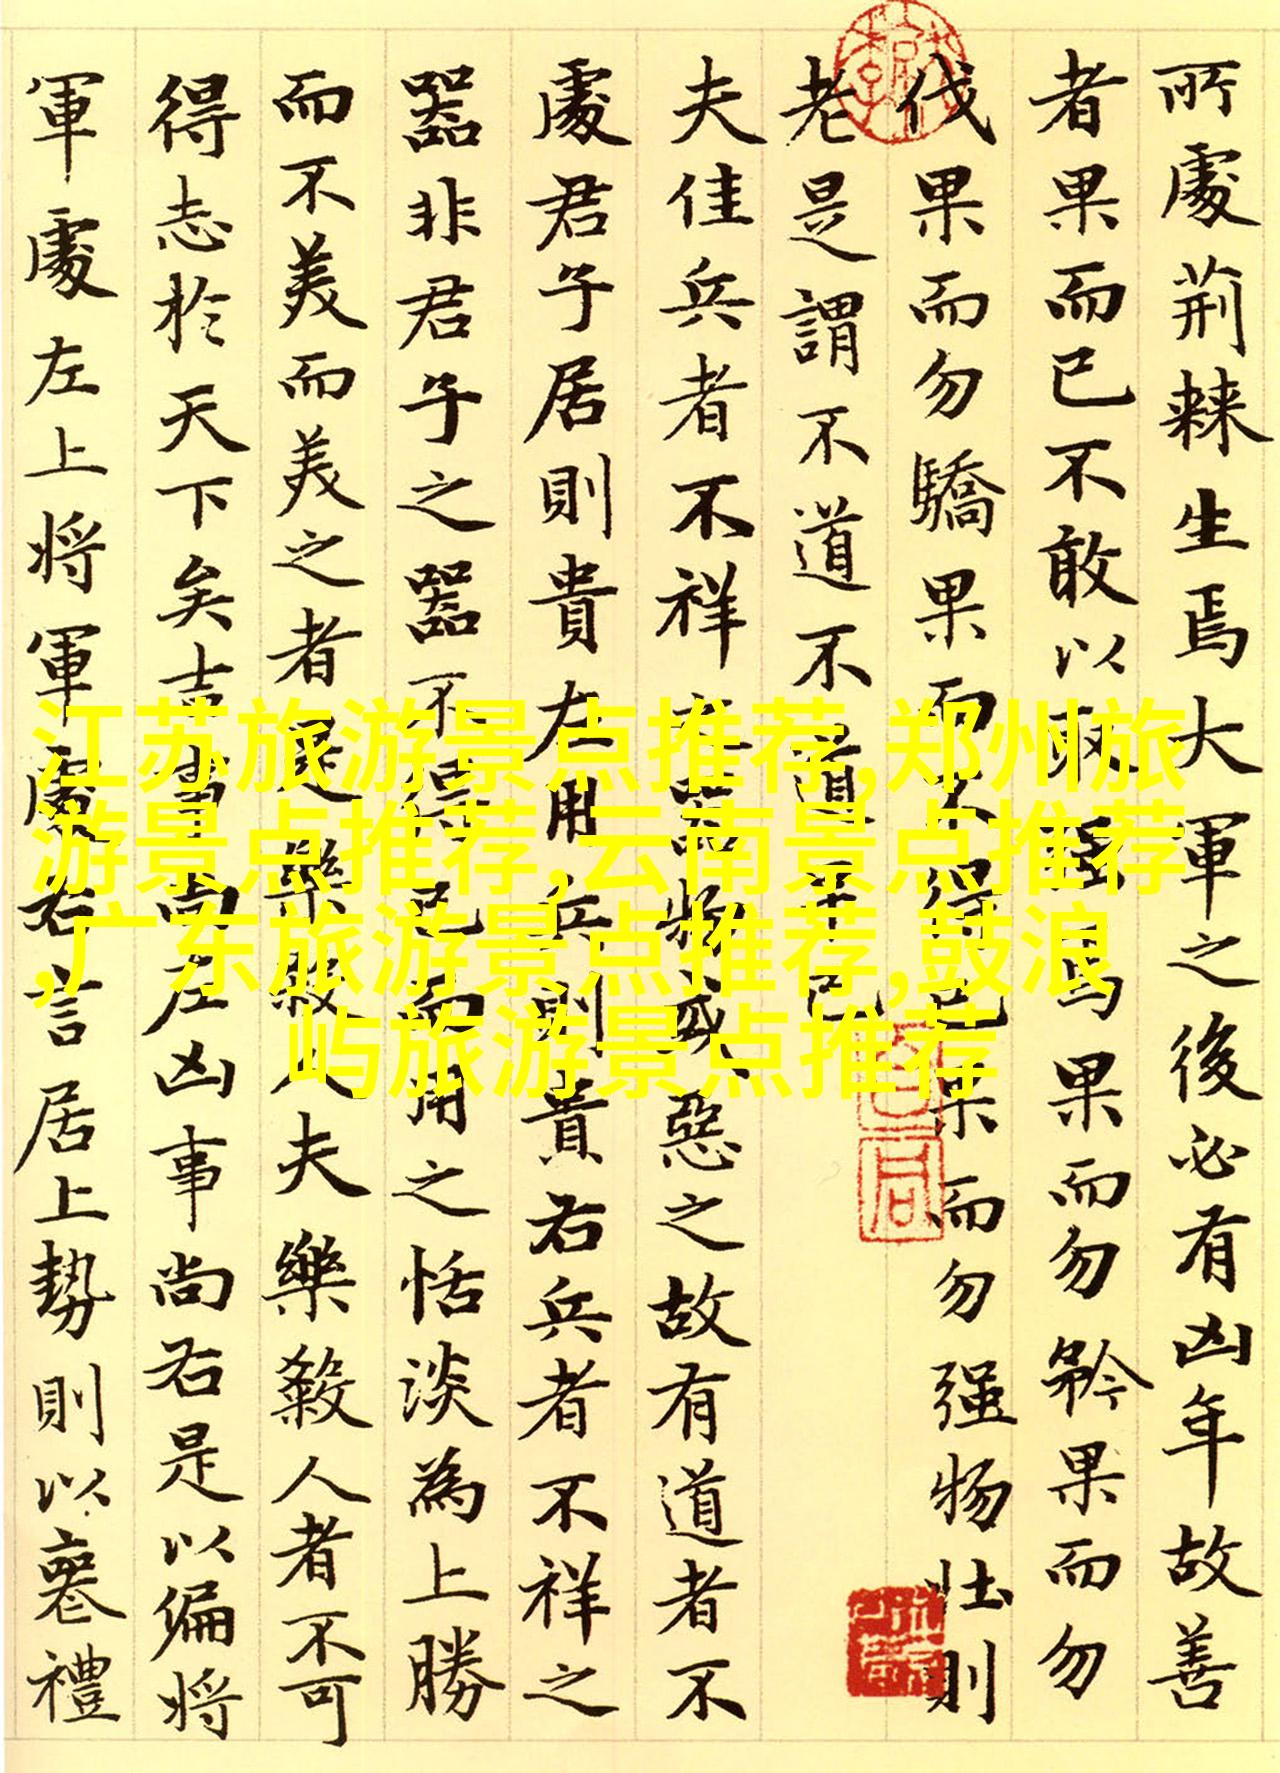 所處荊棘生焉大軍之後必有凶年故善
者果而已不敢以取强焉果而勿矜果而勿
伐果而勿驕果而不得已果而勿强物壮則
老是謂不道不道早已
夫佳兵者不祥之器物或惡之故有道者不
處君子居則貴左用兵則貴右兵者不祥之
器非君子之器不得已而用之恬淡為上勝
而不美而美之者是樂殺人夫樂殺人者不可
得志於天下矣吉事尚左凶事尚右是以偏將
軍處左上將軍處右言居上勢則以喪禮
江苏旅游景点推荐,郑州旅
游景点推荐,云南景点推荐
,广东旅游景点推荐,鼓浪
屿旅游景点推荐